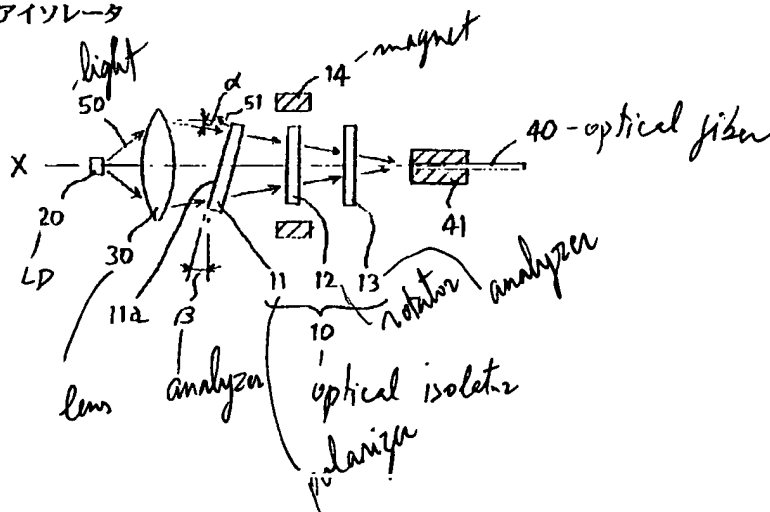 アイソレータ
light
50
α
51
14
magnet
X
40-optical fiber
20
LD
30
11a
β
11 12 13
41
10
rotator
analyzer
lens
analyzer
optical isolator
polarizer